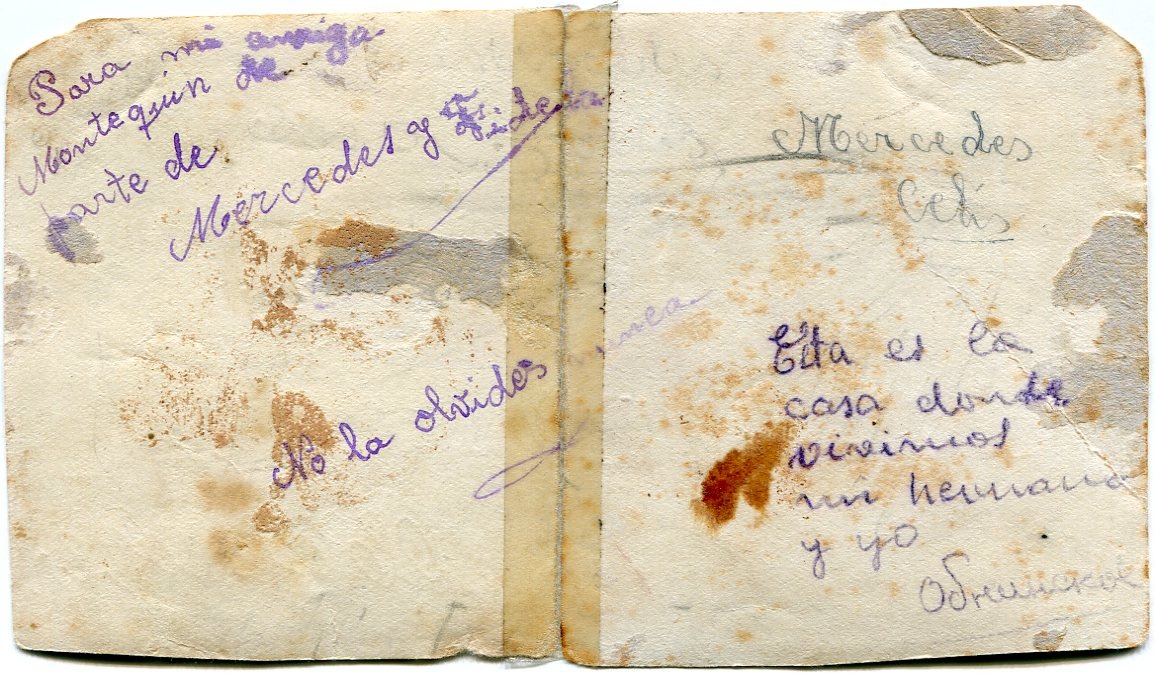 Para mi amiga
Montequin de
parte de
Mercedes y
No la olvides nunca
Mercedes
Celis
Esta es la
casa donde
vivimos
mi hermana
y yo
Обнинское